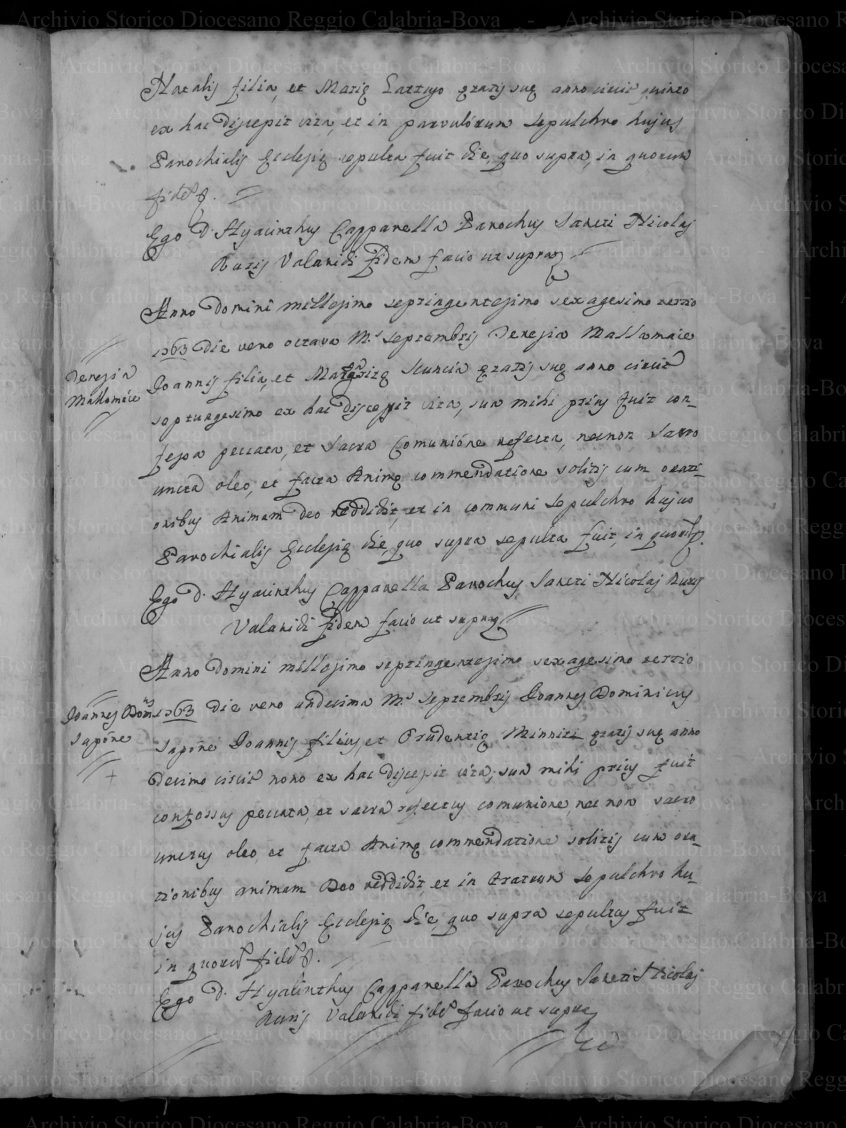 Natalis filia, et Marię Lattujo ętatis suę anno circit quinto
ex hac discepit vita, et in parvulorum sepulchro hujus
Parochialis Ecclesię sepulta fuit die, quo supra, in quorum
fidẽ &.
Ego D. Hyacinthus Cappanella Parochus Sancti Nicolaj
Rurij Valanidi fidem facio ut supra
Anno Domini millesimo septingentesimo sexagesimo tertio
1763 die vero octava M.s Septembris Teresia Mallamaie
Joannis filia, et ętatis suę anno circit
septuagesimo ex hac discepit vita, sua mihi prius fuit con-
fessa peccata, et sacra Comunióne refecta, necnon sacro
uncta oleo, et facta Animę commendatione solitis cum orati-
onibus Animam Deo reddidit, et in communi sepulchro hujus
Parochialis Ecclesię die, quo supra sepulta fuit, in quorũ &.
Ego D. Hyacinthus Cappanella Parochus Sancti Nicolaj Rurij
Valanidi fidem facio ut supra
Teresia
Mallamaie
Anno Domini millesimo septingentesimo sexagesimo tertio
1763 die vero undecima M.s Septembris Joannes Dominicus
Sapone Joannis filius, et Prudentię Minniti ętatis suę anno
decimo circit nono ex hac discepit vita, sua mihi prius fuit
confessus peccata, et sacra refectus comunione, nec non sacro
unctus oleo, et facta Animę commendatione solitis cum ora-
tionibus animam Deo reddidit, et in fratrum sepulchro hu-
jus Parochialis Ecclesię die quo supra sepultus fuit
in quorũ fidẽ &.
Ego D. Hyacinthus Cappanella Parochus Sancti Nicolaj
Rurij Valanidi fidẽ facio ut supra
Joannes Dom.s
Sapone
Archivio Storico Diocesano Reggio Calabria-Bova